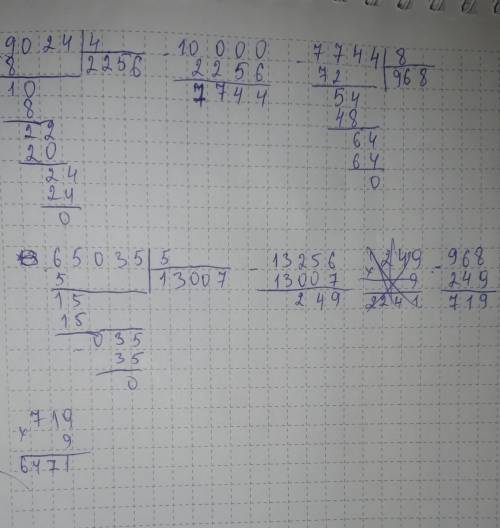 9024 | 4
8 | 2256
10
8
22
20
24
24
0
- 10000
2256
7744
- 7744 | 8
72 | 968
54
48
64
64
0
65035 | 5
5 | 13007
15
15
- 035
35
0
- 13256
13007
249
x 249
9
2241
- 968
249
719
x 719
9
6471